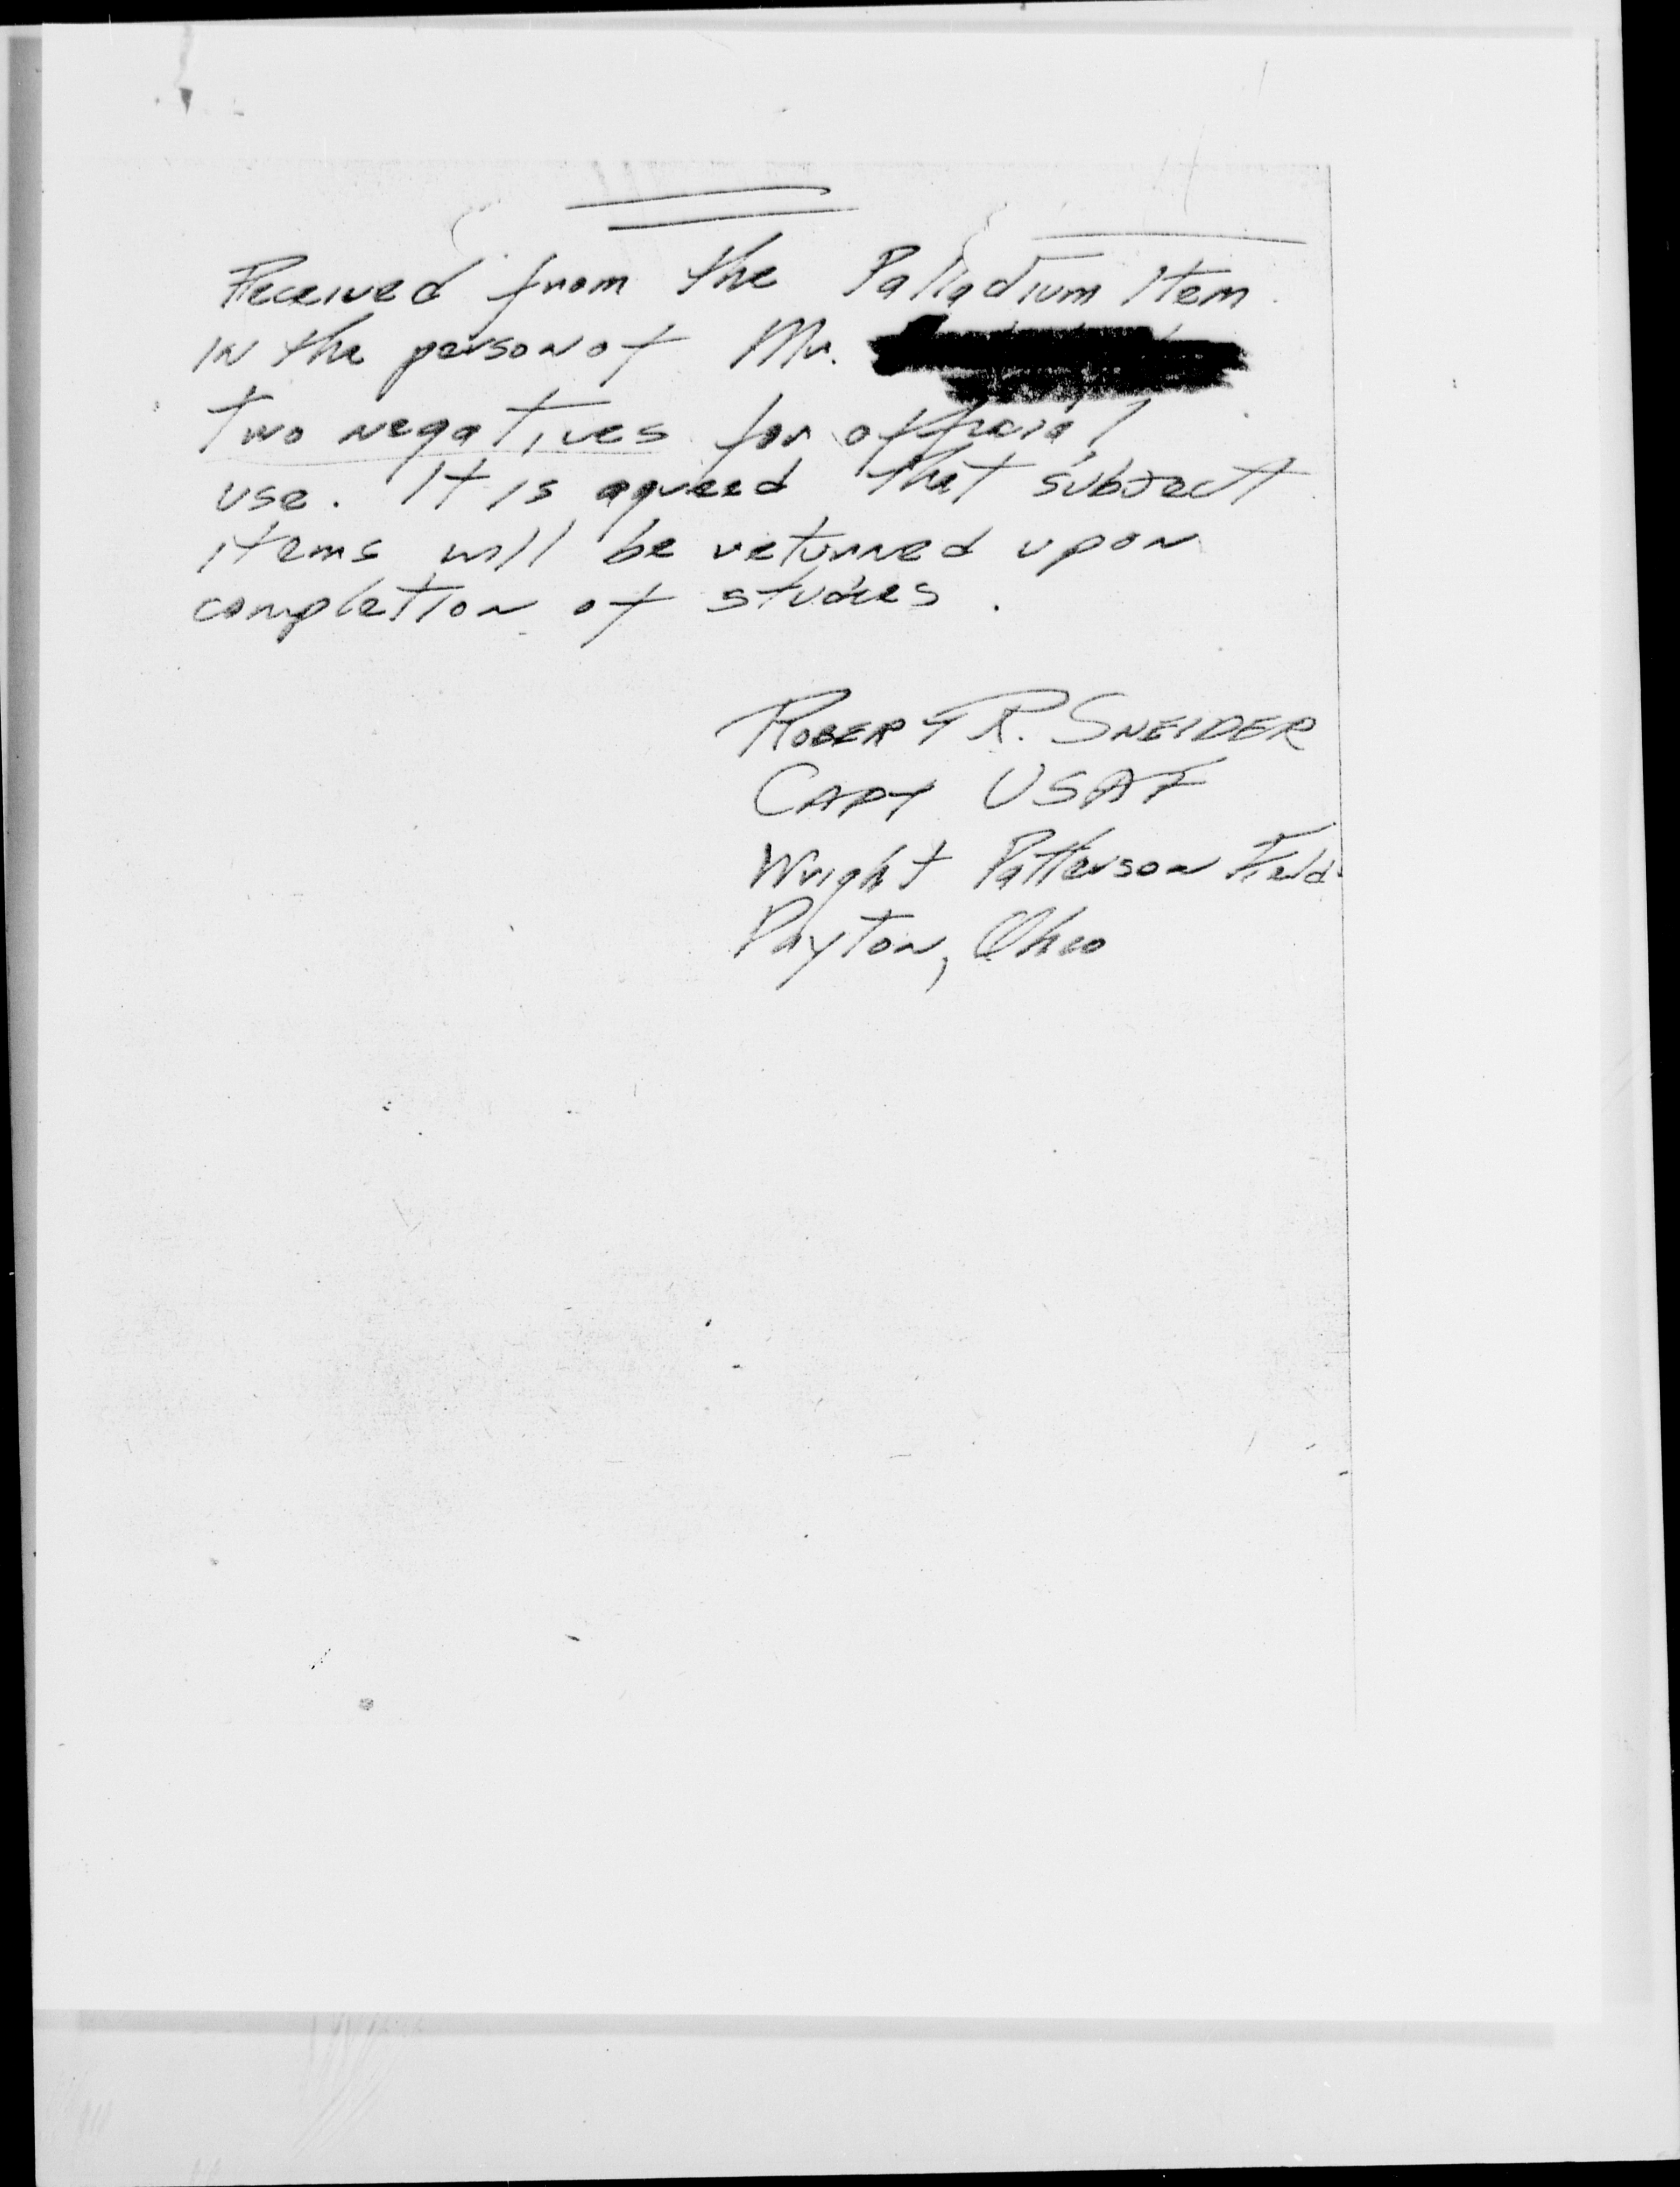 Received from the Palladium Item
in the person of Mr.
two negatives for official
use. It is agreed that subject
items will be returned upon
completion of studies.
ROBERT R. SNEIDER
CAPT USAF
Wright Patterson Field
Dayton, Ohio